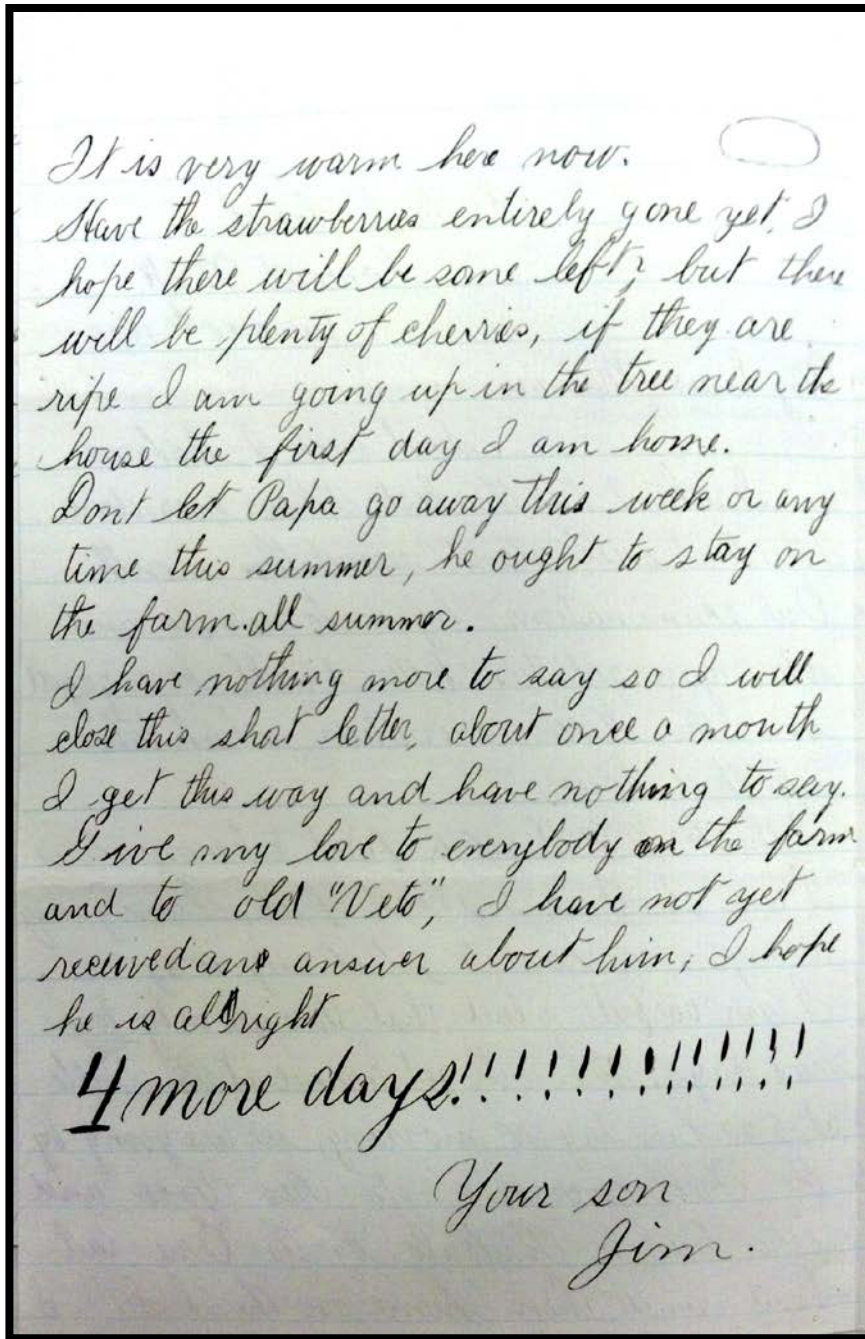 It is very warm here now.
Have the strawberries entirely gone yet. I
hope there will be some left? but there
will be plenty of cherries, if they are
ripe I am going up in the tree near the
house the first day I am home.
Dont let Papa go away this week or any
time this summer, he ought to stay on
the farm all summer.
I have nothing more to say so I will
close this short letter, about once a month
I get this way and have nothing to say.
Give my love to everybody on the farm
and to old "Veto", I have not yet
received an answer about him, I hope
he is allright
4 more days!!!!!!!!!!!!!
Your son
Jim.